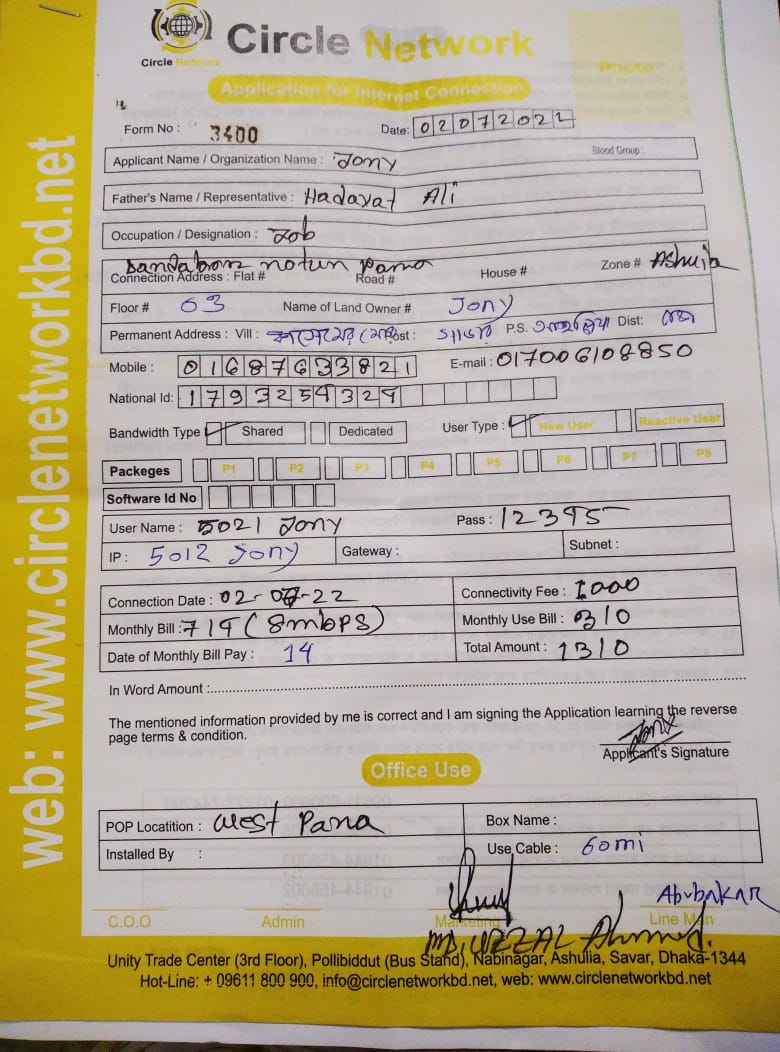 Circle Network
Circle Network
Application for Internet Connection
Photo
Form No : 3400
Date: 02072022
Applicant Name / Organization Name : Jony
Blood Group :
Father's Name / Representative : Hadayat Ali
Occupation / Designation : Job
notun para
Connection Address : Flat # Road # House # Zone # Ashulia
Floor # 63 Name of Land Owner # Jony
Permanent Address : Vill : Post : P.S. Dist:
Mobile : 01687633821 E-mail : 017006108850
National Id: 1793254324
Bandwidth Type Shared Dedicated User Type : New User Reactive User
Packeges P1 P2 P3 P4 P5 P6 P7 P8
Software Id No
User Name : 5021 Jony Pass : 12345
IP : 5012 Jony Gateway : Subnet :
Connection Date : 02-07-22 Connectivity Fee : 1000
Monthly Bill : 714 (8mbps) Monthly Use Bill : 310
Date of Monthly Bill Pay : 14 Total Amount : 1310
In Word Amount :
The mentioned information provided by me is correct and I am signing the Application learning the reverse
page terms & condition.
Jony
Applicant's Signature
Office Use
POP Locatition : West Para Box Name :
Installed By : Use Cable : 60mi
Abubakar
C.O.O Admin Marketing Line Man
MD. UZZAL Ahmed.
Unity Trade Center (3rd Floor), Pollibiddut (Bus Stand), Nabinagar, Ashulia, Savar, Dhaka-1344
Hot-Line: + 09611 800 900, info@circlenetworkbd.net, web: www.circlenetworkbd.net
web: www.circlenetworkbd.net